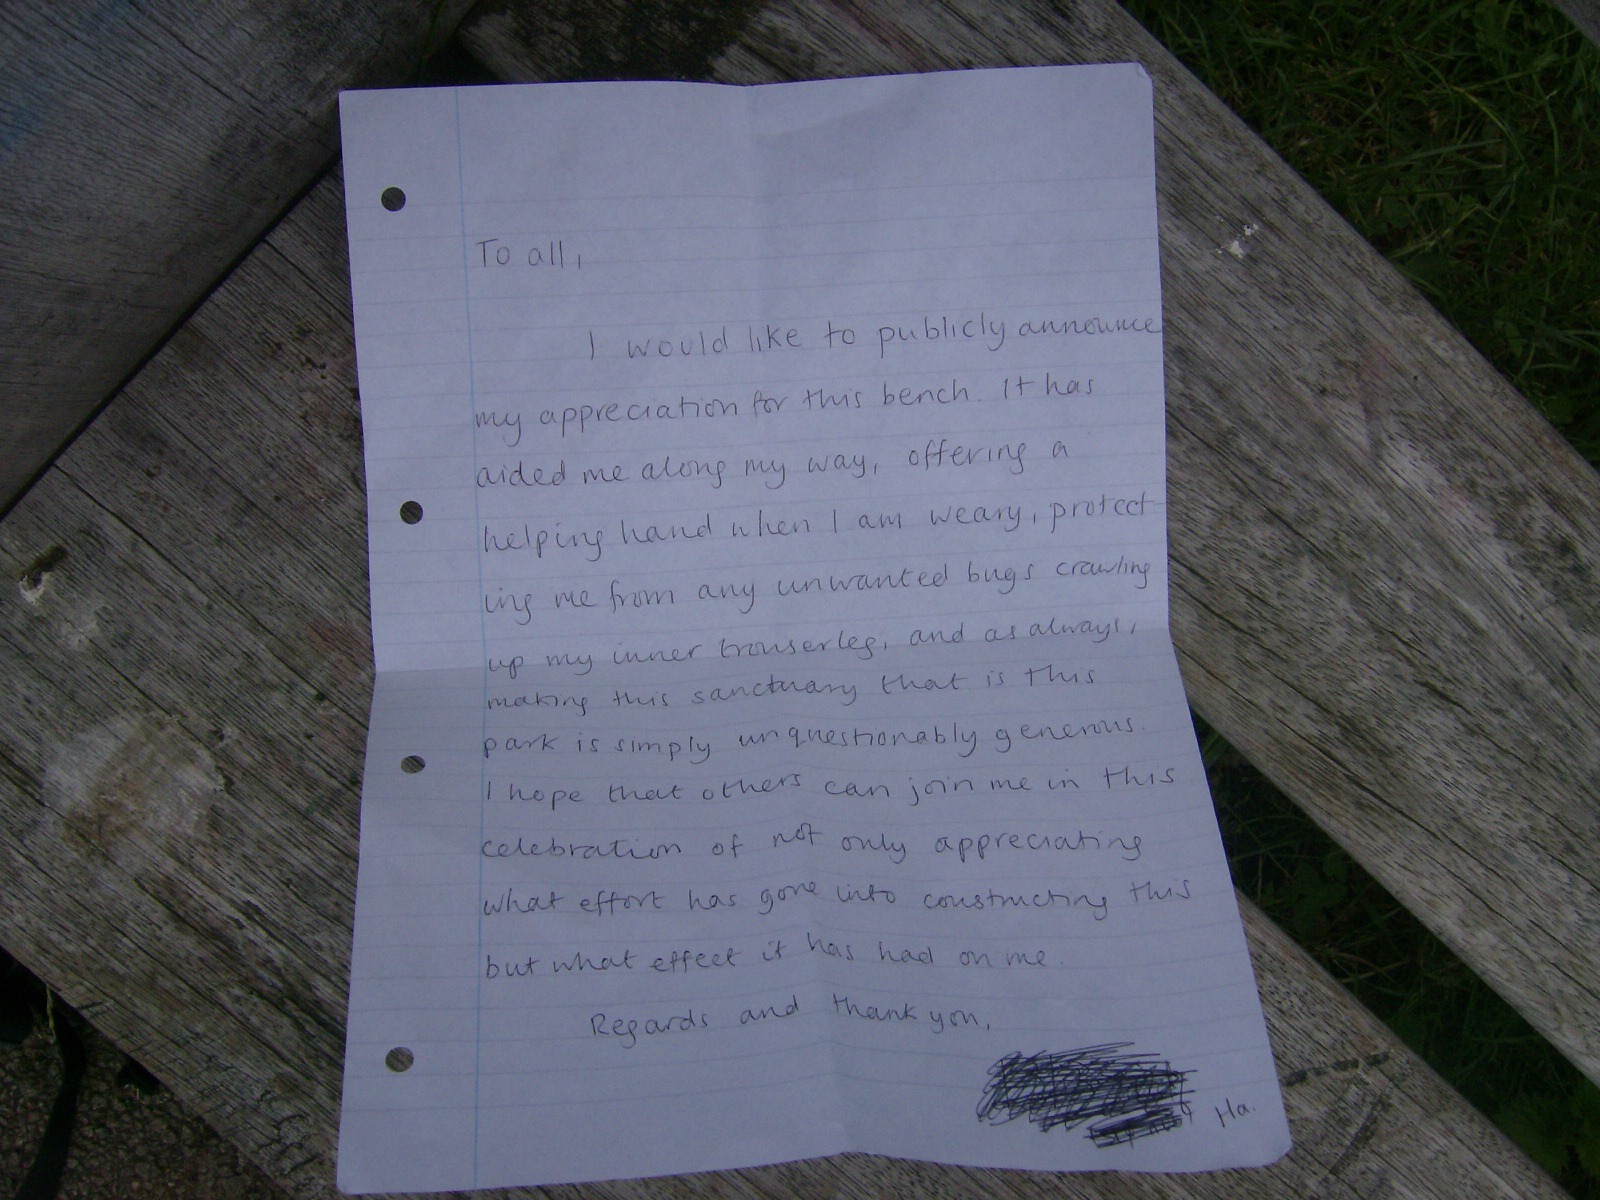 To all,
I would like to publicly announce
my appreciation for this bench. It has
aided me along my way, offering a
helping hand when I am weary, protect-
ing me from any unwanted bugs crawling
up my inner trouserleg, and as always,
making this sanctuary that is this
park is simply unquestionably generous.
I hope that others can join me in this
celebration of not only appreciating
what effort has gone into constructing this
but what effect it has had on me.
Regards and thank you,
Ha.